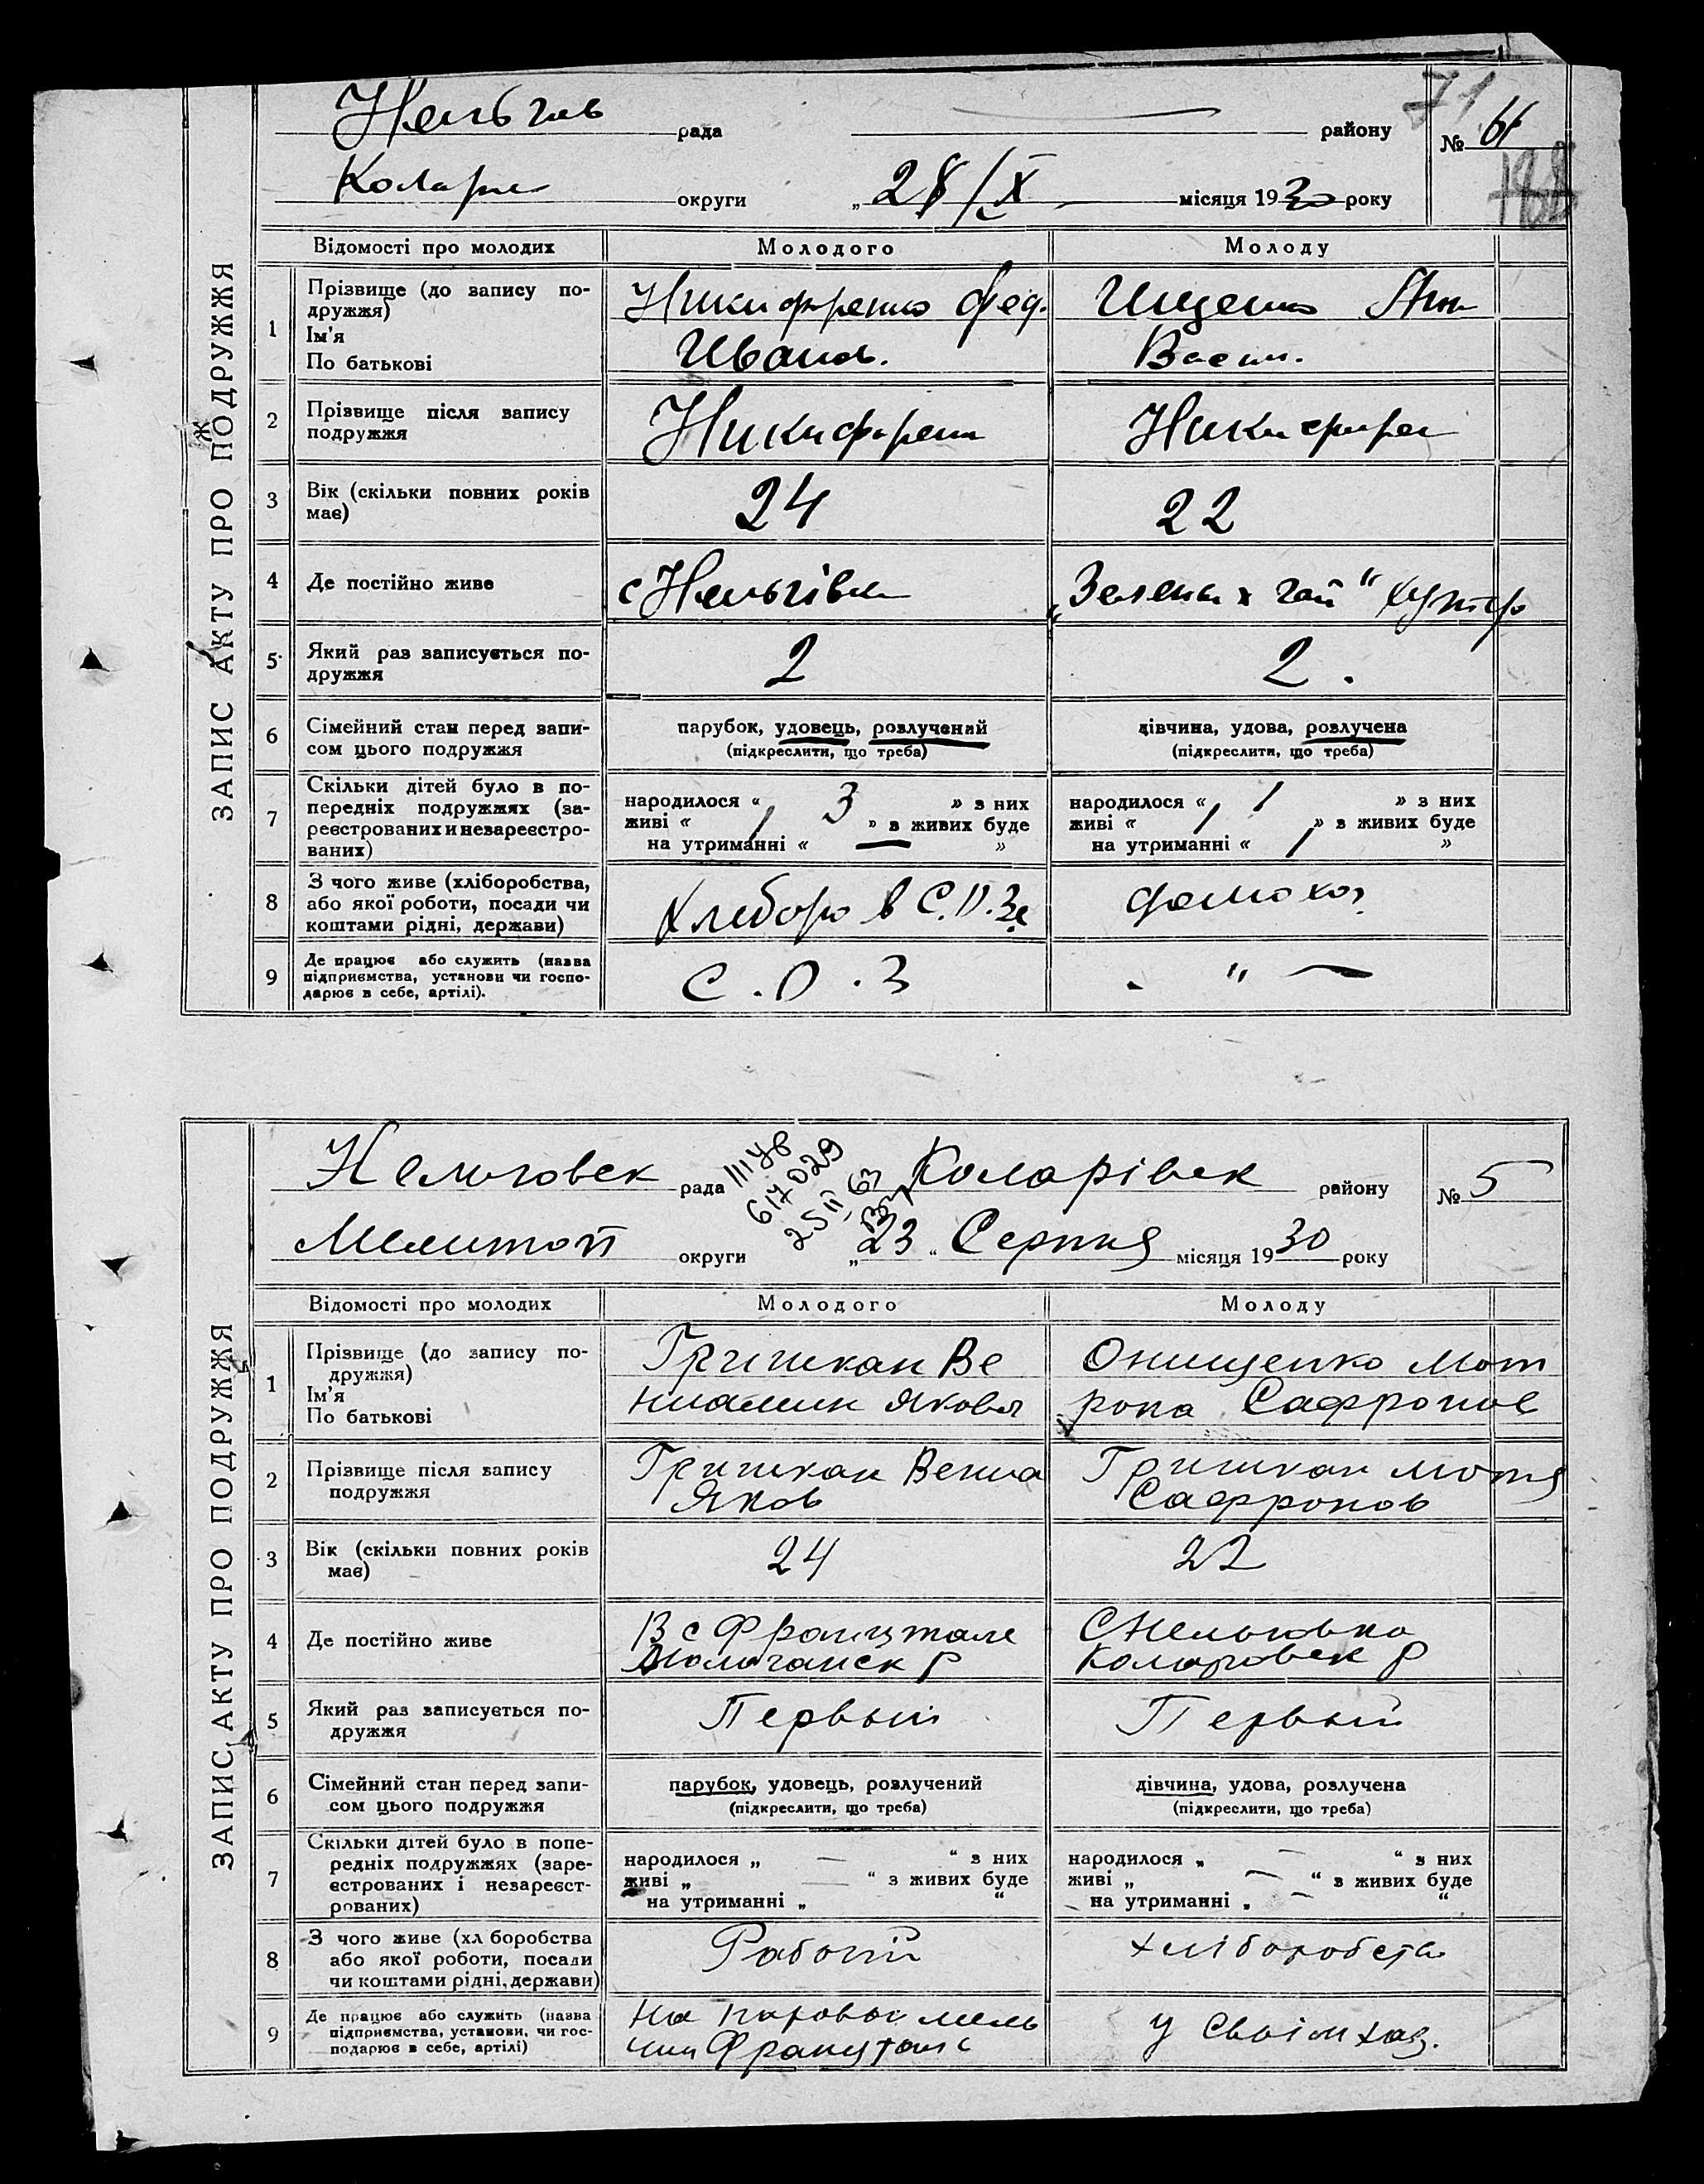 ЗАПИС АКТУ ПРО ПОДРУЖЖЯ
71
Нельгов рада району № 61
Колари округи „28/IX місяця 1930 року
188
Відомості про молодих Молодого Молоду
1 Прізвище (до запису по-
дружжя)
Ім'я
По батькові
Никифоренко Фед.
Иванов.
Ищенко Анн
Васил.
2 Прізвище після запису
подружжя
Никифорен
Никифорен
3 Вік (скільки повних років
має)
24 22
4 Де постійно живе с Нельгівка „Зелены х гай" хутор
5 Який раз записується по-
дружжя
2 2.
6 Сімейний стан перед запи-
сом цього подружжя
парубок, удовець, розлучений
(підкреслити, що треба)
дівчина, удова, розлучена
(підкреслити, що треба)
7 Скільки дітей було в по-
передніх подружжях (за-
реєстрованих и незареєстро-
ваних)
народилося « 3 » з них
живі « » з живих буде
на утриманні « — »
народилося « 1 » з них
живі « » з живих буде
на утриманні « »
8 З чого живе (хліборобства,
або якої роботи, посади чи
коштами рідні, держави)
Хлеборо в С.О.Зе
домохоз
9 Де працює або служить (назва
підприємства, установи чи госпо-
дарює в себе, артілі).
С.О.З
- " —
ЗАПИС АКТУ ПРО ПОДРУЖЖЯ
Нельговск рада Коларівск району № 5
III УВ
617029
25 II 63
Мелитоп округи „23" Серпня місяця 1930 року
Відомості про молодих Молодого Молоду
1 Прізвище (до запису по-
дружжя)
Ім'я
По батькові
Гришкан Ве
ниамин Яковл
Онищенко Мот
рона Сафронов
2 Прізвище після запису
подружжя
Гришкан Вениа
Яков
Гришкан Мотя
Сафронов
3 Вік (скільки повних років
має)
24 22
4 Де постійно живе
В с Францтале
Молочанск р
С Нельговка
Коларовск р
5 Який раз записується по-
дружжя
Первый Первый
6 Сімейний стан перед запи-
сом цього подружжя
парубок, удовець, розлучений
(підкреслити, що треба)
дівчина, удова, розлучена
(підкреслити, що треба)
7 Скільки дітей було в попе-
редніх подружжях (заре-
єстрованих і незареєст-
рованих)
народилося „ — " з них
живі „ — " з живих буде
на утриманні „ "
народилося „ — " з них
живі „ — " з живих буде
на утриманні „ — "
8 З чого живе (хл боробства
або якої роботи, посади
чи коштами рідні, держави)
Рабочій
хліборобств
9 Де працює або служить (назва
підприємства, установи, чи гос-
подарює в себе, артілі)
На паровой мель
ници Францталь
У своім хаз.